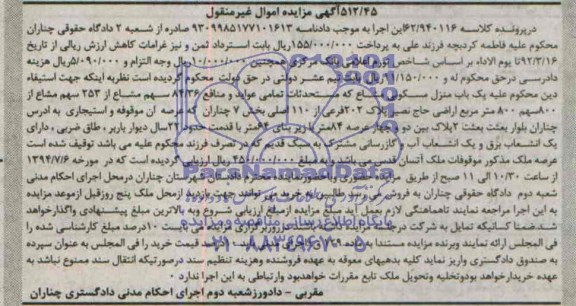 ۵۱۲/۴۵آگهی مزایده اموال غیرمنقول
درپرونده کلاسه ۶۲/۹۴۰۱۱۶این اجرا به موجب دادنامه ۹۳۰۹۹۸۵۱۷۷۱۰۱۶۱۳ صادره از شعبه ۲ دادگاه حقوقی چناران
محکوم علیه فاطمه کردبچه فرزند علی به پرداخت ۱۵۵/۰۰۰/۰۰۰ریال بابت استرداد ثمن و نیز غرامات کاهش ارزش ریالی از تاریخ
۹۲/۳/۱۶تا یوم الاداء بر اساس شاخص تورم بانک مرکزی همچنین ۱۰/۰۰۰/۰۰۰ریال وجه التزام و ۵/۰۹۰/۰۰۰ریال هزینه
دادرسی درحق محکوم له و ریال نیم عشر دولتی در حق دولت محکوم گردیده است نظربه اینکه جهت استیفاء
دین محکوم علیه یک باب منزل مسکونی مشاع که مستحدثات تمامی عواید و منافع ۸۴/۳۶ سهم مشاع از ۲۵۳ سهم مشاع از
۸۰۰سهم ۸۰۰ متر مربع اراضی حاج نصیر پلاک ۲۰۲فرعی از ۱۱۰ اصلی بخش ۷ چناران که عرصه ان موقوفه و استیجاری به ادرس
چناران بلوار بعثت بعثت ۲پلاک بین دو و چهار عرصه ۸۴متر با زیر بنای ۶۴متر با قدمت حدود ۲۲سال دیوار باربر ، طاق ضربی ، دارای
یک انشعاب برق و یک انشعاب آب و گازرسانی مشترک به سبک قدیم که در تصرف فرزند محکوم علیه می باشد توقیف شده است
عرصه ملک مذکور موقوفات ملک آستان قدس می باشد و به مبلغ ۴۵۰/۰۰۰/۰۰۰ ریال ارزیابی گردیده است که در مورخه ۱۳۹۴/۷/۶
از ساعت ۱۰/۳۰ الی ۱۱ صبح از طریق شهرستان چناران درمحل اجرای احکام مدنی
شعبه دوم دادگاه حقوقی چناران به فروش می رسد طالبین به خرید می توانند جهت بازدید ازمحل ملک پنج روزقبل ازموعد مزایده
به این اجرا مراجعه نمایند تاهماهنگی لازم بعمل آید مبلغ مزایده ازمبلغ ارزیابی شروع وبه بالاترین مبلغ پیشنهادی واگذارخواهد
شد.ضمنا کسانیکه تمایل به شرکت در بابت ۱۰درصد مبلغ کارشناسی شده را
فی المجلس ارائه نمایند وبرنده مزایده مستندا به ماده قیمت خرید را فی المجلس به عنوان سپرده
به صندوق دادگستری واریز نماید کلیه بدهیهای معوقه به عهده فروشنده وهزینه تنظیم سند درصورتیکه انتقال سند ممنوع نباشد به
عهده خریدارخواهد بودوتخلیه وتحویل ملک تابع مقررات خواهدبود وارتباطی به این اجرا ندارد .
مقربی - دادورزشعبه دوم اجرای احکام مدنی دادگستری چناران
ParsNamadData
پایگاه اطلاع رسانی مناقصه و مزایده
۰۲۱-۸۸۳۴۹۶۷۰-۵